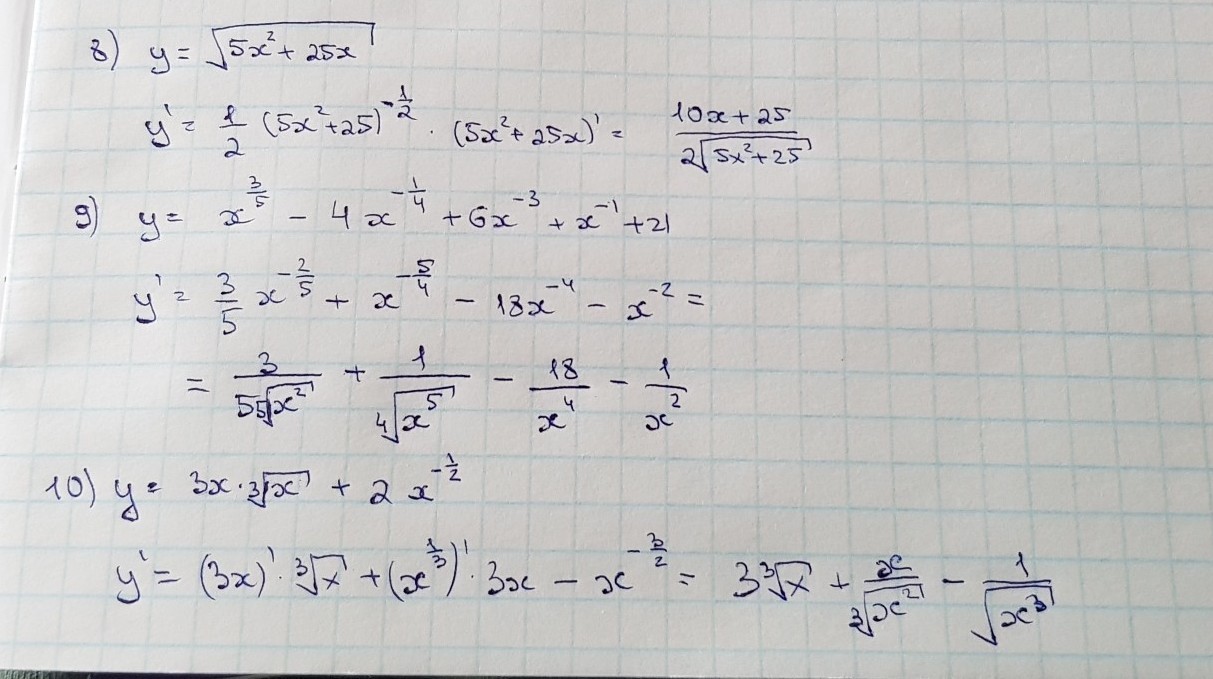 8) y = √(5x² + 25x)
y' = 1/2 (5x²+25)^(-1/2) · (5x²+25x)' = (10x+25)/(2√(5x²+25))
9) y = x^(3/5) - 4x^(-1/4) + 6x^(-3) + x^(-1) + 21
y' = 3/5 x^(-2/5) + x^(-5/4) - 18x^(-4) - x^(-2) =
= 3/(5 ⁵√(x²)) + 1/(⁴√(x⁵)) - 18/x⁴ - 1/x²
10) y = 3x · ³√x + 2x^(-1/2)
y' = (3x)' · ³√x + (x^(1/3))' · 3x - x^(-3/2) = 3 ³√x + x/(³√(x²)) - 1/√(x³)